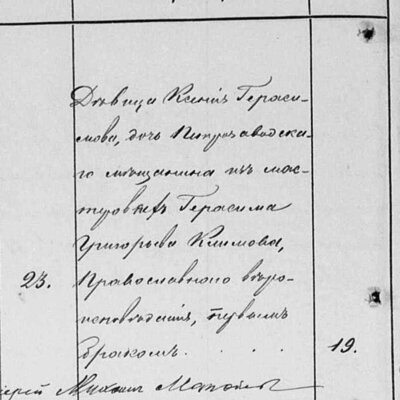 Дѣвица Ксенія Гераси-
мова, дочь Петрозаводска-
го мѣщанина изъ мас-
теровыхъ Герасима
Григорьева Климова,
23. Православнаго вѣро-
исповѣданія, первымъ
бракомъ. . . . 19.
Михаил